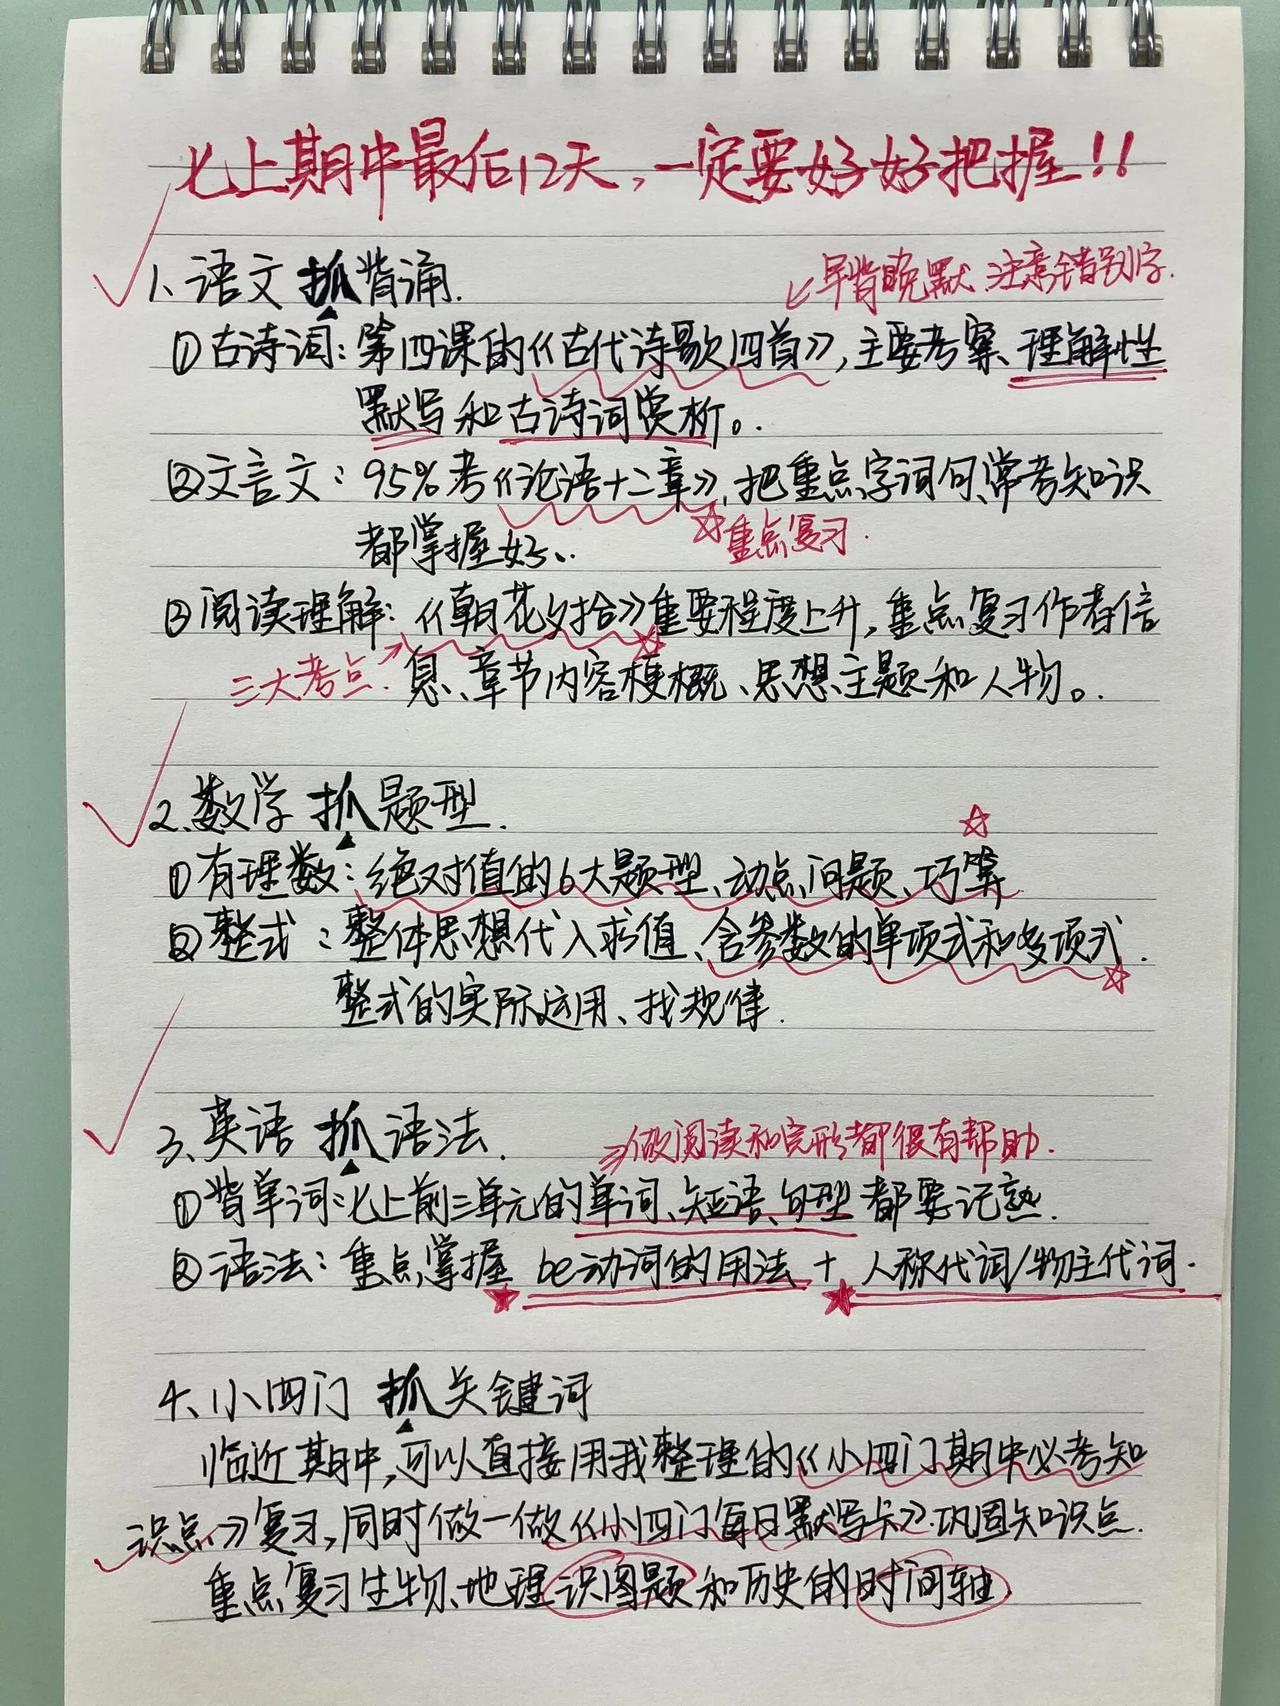 七上期中最后12天,一定要好好把握!!
1、语文 抓背诵.
早背晚默 注意错别字.
①古诗词:第四课的《古代诗歌四首》,主要考察、理解性
默写和古诗词赏析。
②文言文:95%考《论语十二章》,把重点字词句、常考知识
都掌握好、.
重点复习.
③阅读理解:《朝花夕拾》重要程度上升,重点复习作者信
三大考点.
息、章节内容梗概、思想主题和人物。
2.数学 抓题型.
①有理数:绝对值的6大题型、动点问题、巧算
②整式:整体思想代入求值、含参数的单项式和多项式.
整式的实际运用、找规律.
3、英语 抓语法.
⇒做阅读和完形都很有帮助.
①背单词:七上前三单元的单词、短语、句型都要记熟.
②语法:重点掌握 be动词的用法 + 人称代词/物主代词.
4、小四门 抓关键词
临近期中,可以直接用我整理的《小四门期中必考知
识点》复习,同时做一做《小四门每日默写卡》巩固知识点.
重点复习生物、地理识图题和历史的时间轴.